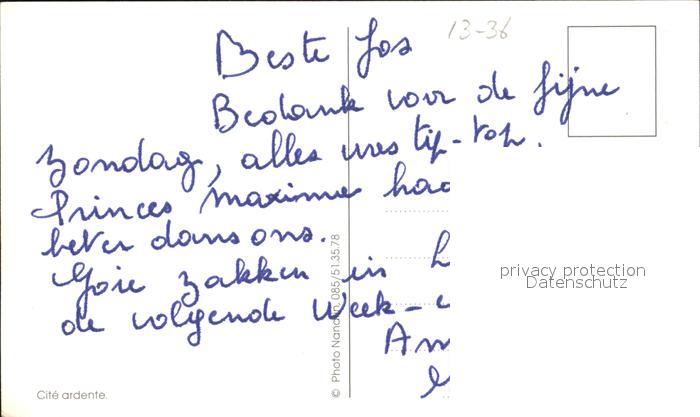 13-36
Beste Jos
Bedank voor de fijne
zondag, alles was tip-top.
Princes maxima had
beter dans ons.
zakken in
de volgende Week-
Cité ardente.
© Photo Nandrin 085/513578
privacy protection
Datenschutz